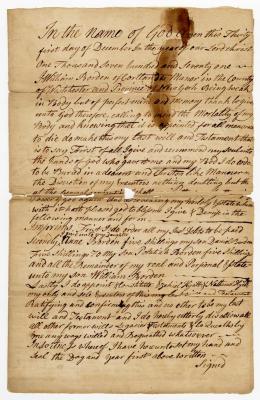 In the Name of God Amen this Thirty
first day of December In the year of our Lord Christ
One Thousand Seven hundred and Seventy one
William Borden of Cortlandts Manor in the County
of Westchester and Province of New York Being weak
in Body but of perfect mind and memory thank be given
unto God therefore calling to mind the Mortality of my
Body and knowing that it is appointed unto all men once
to die do make this my Last will and Testament that
is to say First of all I give and recommend my soul into
the hands of God who gave it me and my Body I do order
to be Buried in a decent and Christian like Manner on
the Direction of my Executors nothing doubting but the
at the general
with it hath pleased God to bless me I give & Devise in the
following manner and form
Imprimis First I do order all my Just Debts to be paid
Secondly Anne Borden five shillings my son Daniel Borden
Five Shillings To my Son Borden five Shillings
and all the Remainder of my real and Personal Estate
unto my Son William Borden
Lastly I do appoint
my only and sole Executors of this my
Ratifying and confirming this and no other to be my last
will and Testament and I do hereby utterly disallow all
all other former wills Legacies Testament &
me any ways willed and Bequeathed whatsoever
In witness whereof I have hereunto set my hand and
Seal the Day and Year first above written
Signed